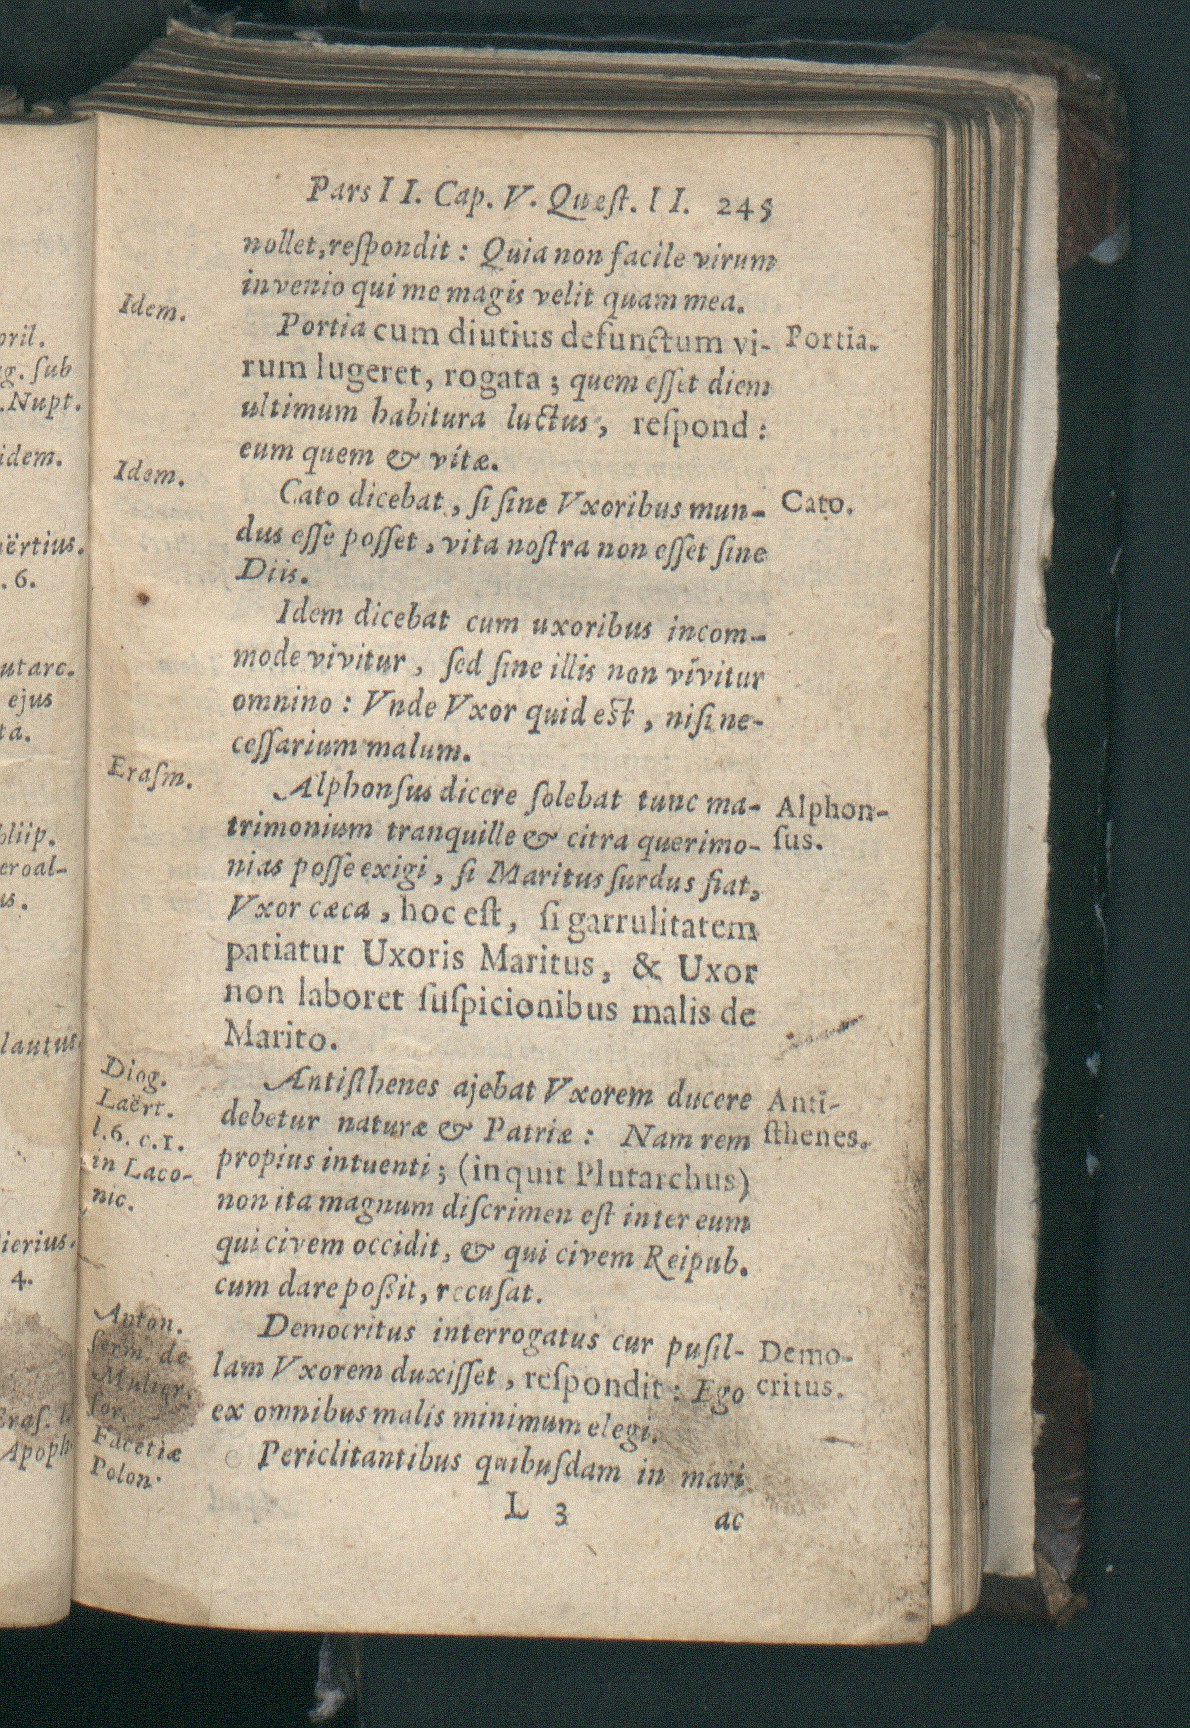 Pars II. Cap. V. Quæſt. II. 245
nollet, reſpondit: Quia non facile virum
invenio qui me magis velit quam mea.
Idem.
Portia cum diutius defunctum vi-
Portia.
rum lugeret, rogata; quem eſſet diem
ultimum habitura luctus, reſpond:
eum quem & vitæ.
Idem.
Cato dicebat, ſi ſine Vxoribus mun-
Cato.
dus eſſe poſſet, vita noſtra non eſſet ſine
Diis.
Idem dicebat cum uxoribus incom-
mode vivitur, ſed ſine illis non vivitur
omnino: Vnde Vxor quid est, niſi ne-
ceſſarium malum.
Eraſm.
Alphonſus dicere ſolebat tunc ma-
Alphon-
trimonium tranquille & citra querimo-
ſus.
nias poſſe exigi, ſi Maritus ſurdus fiat,
Vxor cæca, hoc eſt, ſi garrulitatem
patiatur Uxoris Maritus, & Uxor
non laboret ſuſpicionibus malis de
Marito.
Diog.
Laërt.
l.6. c.1.
in Laco-
nic.
Antiſthenes ajebat Vxorem ducere
Anti-
debetur naturæ & Patriæ: Nam rem
ſthenes.
propius intuenti; (inquit Plutarchus)
non ita magnum diſcrimen eſt inter eum
qui civem occidit, & qui civem Reipub.
cum dare poßit, recuſat.
Anton.
ſerm. de
Mulier.
for.
Democritus interrogatus cur puſil-
Demo-
lam Vxorem duxiſſet, reſpondit: Ego
critus.
ex omnibus malis minimum elegi.
Facetiæ
Polon.
Periclitantibus quibuſdam in mari
L 3
ac
pril.
ug. ſub
.Nupt.
idem.
aërtius.
. 6.
utarc.
ejus
ta.
eroal-
us.
lautus.
ierius.
4.
Eraſ. l.
Apoph